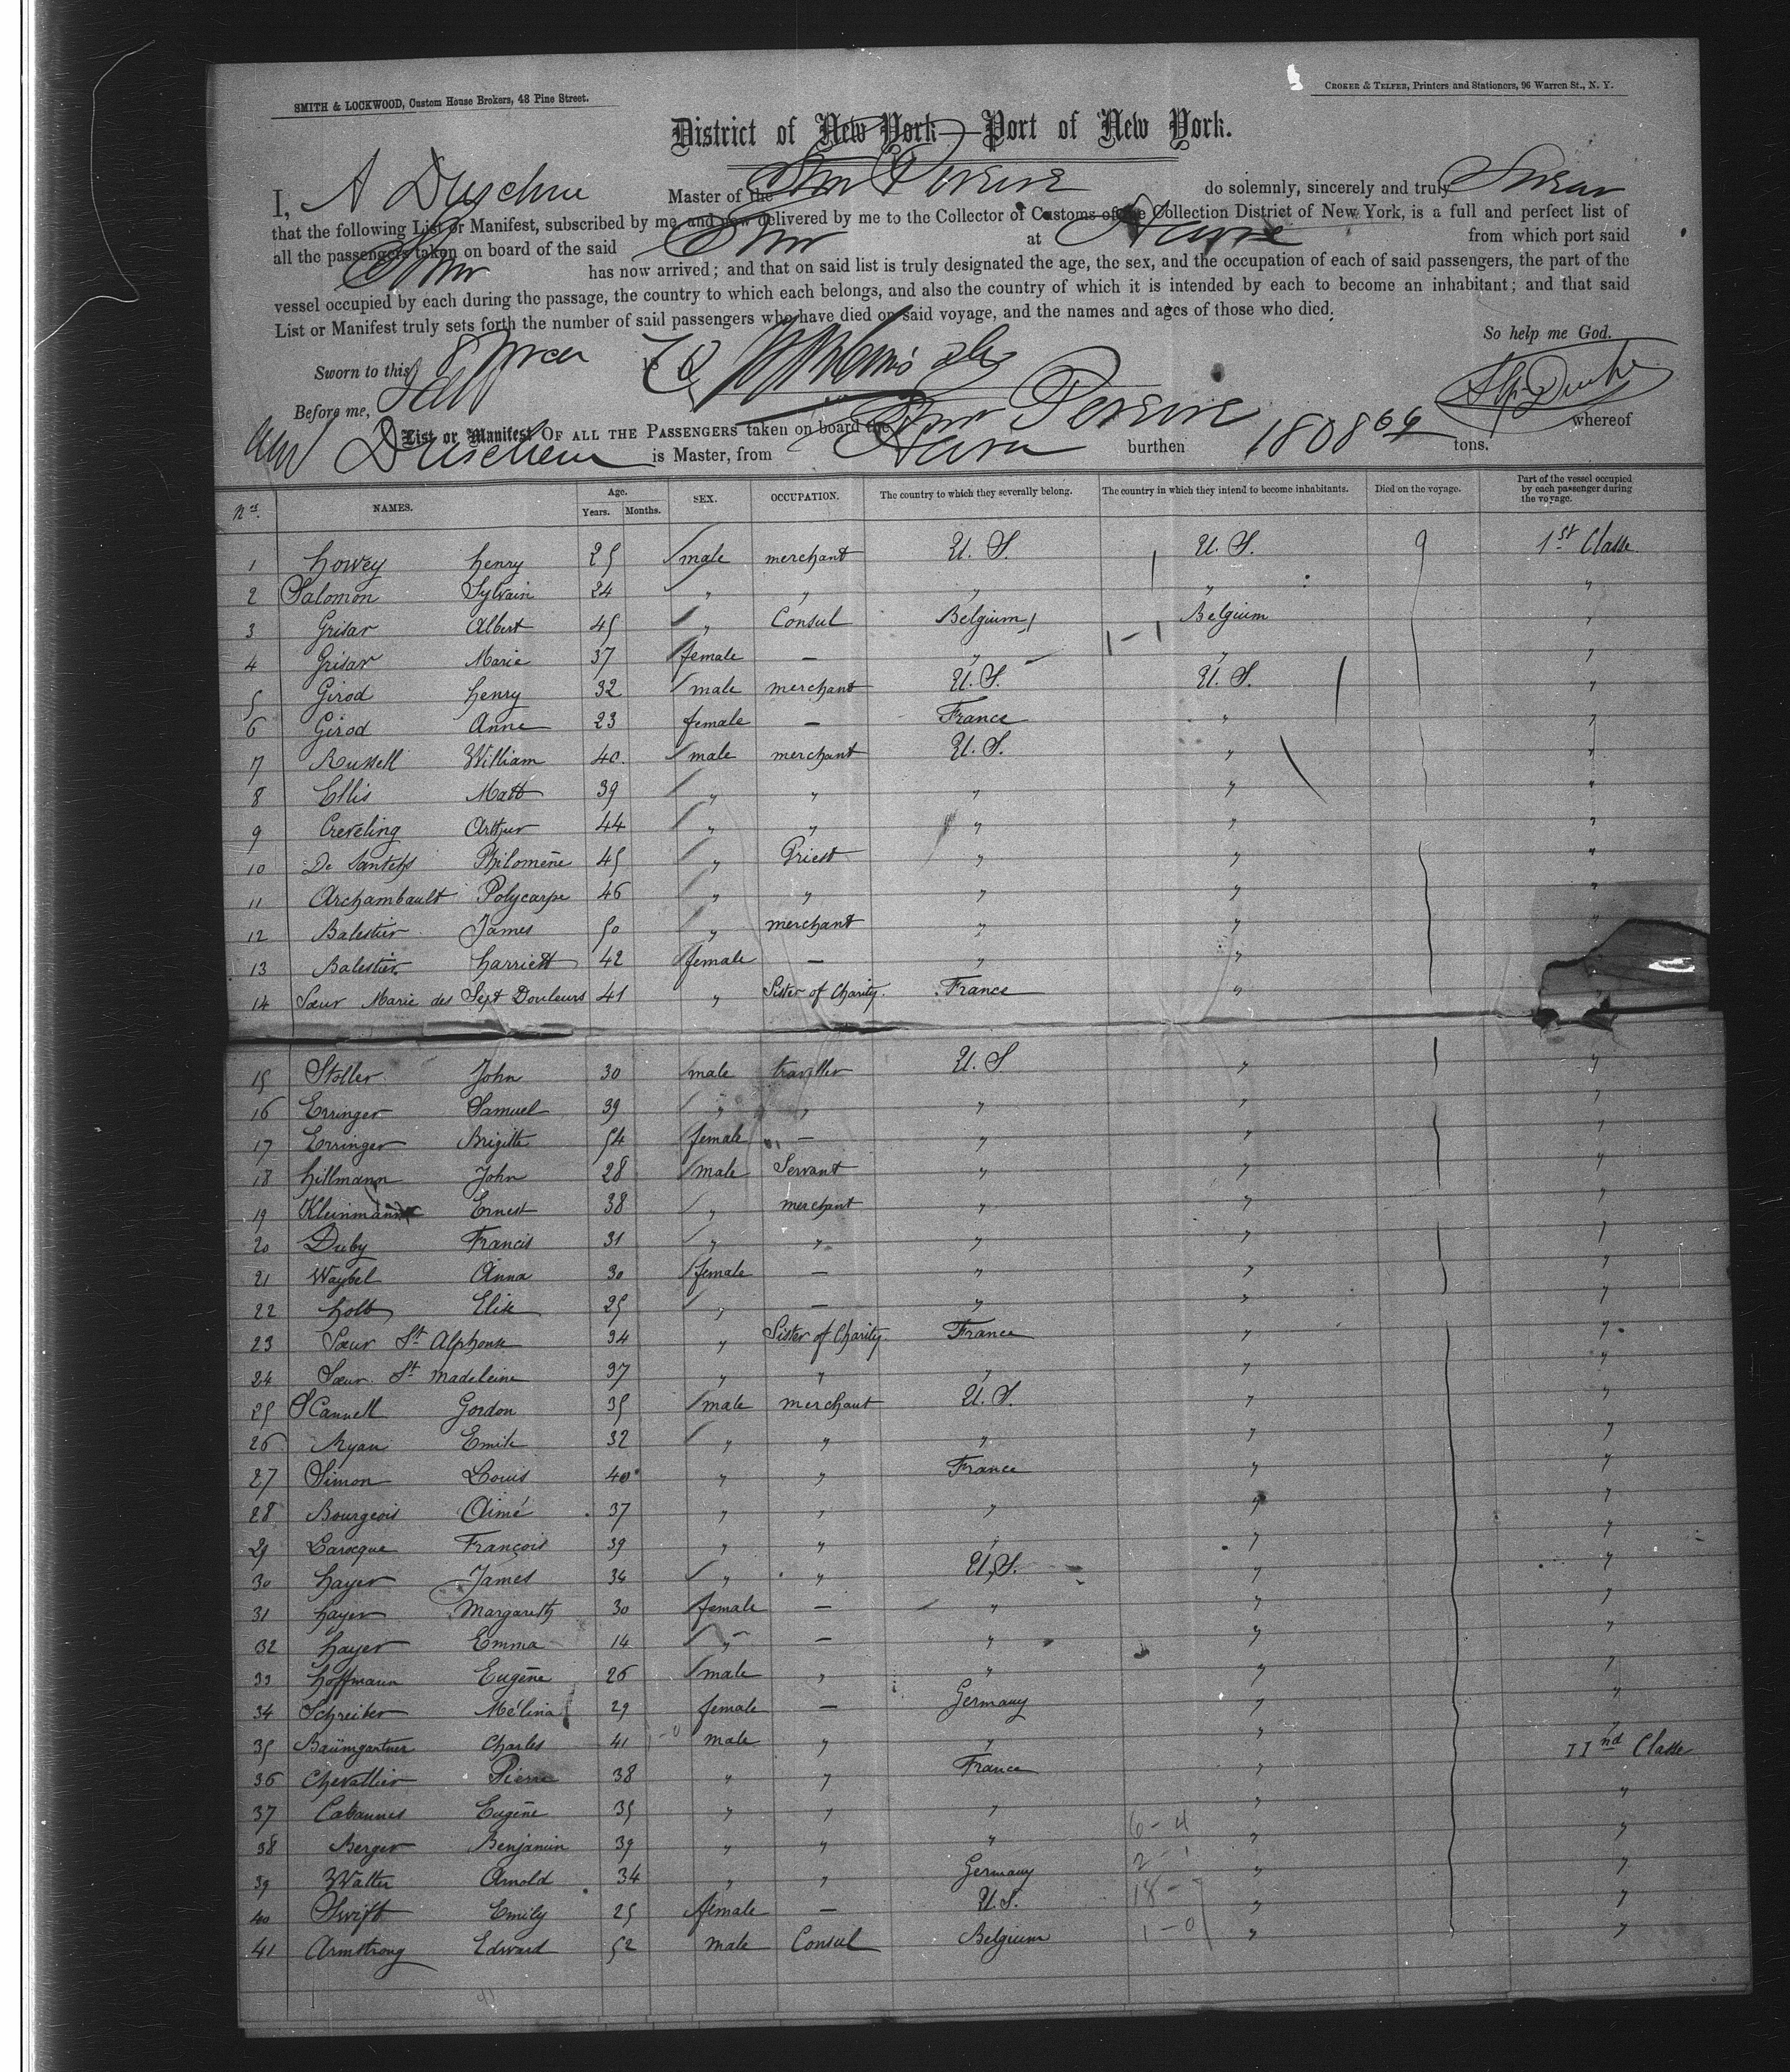 SMITH & LOCKWOOD, Custom House Brokers, 48 Pine Street.
CROKER & TELFER, Printers and Stationers, 96 Warren St., N. Y.
District of New York—Port of New York.
I, A Duschene Master of the Str Pereire do solemnly, sincerely and truly Swear
that the following List or Manifest, subscribed by me, and now delivered by me to the Collector of Customs of the Collection District of New York, is a full and perfect list of
all the passengers taken on board of the said Str at Havre from which port said
Str has now arrived; and that on said list is truly designated the age, the sex, and the occupation of each of said passengers, the part of the
vessel occupied by each during the passage, the country to which each belongs, and also the country of which it is intended by each to become an inhabitant; and that said
List or Manifest truly sets forth the number of said passengers who have died on said voyage, and the names and ages of those who died.
So help me God.
Sworn to this 8 1876
Before me,
List or Manifest OF ALL THE PASSENGERS taken on board the Str Pereire whereof
is Master, from Havre burthen 1808 64 tons.
Nos. NAMES. Age. Years. Months. SEX. OCCUPATION. The country to which they severally belong. The country in which they intend to become inhabitants. Died on the voyage. Part of the vessel occupied by each passenger during the voyage.
1 howey henry 25 male merchant U. S. U. S. 1st Classe
2 Salomon Sylvain 24 " " " " "
3 Grisar Albert 45 " Consul Belgium Belgium "
4 Grisar Marie 37 female — " " "
5 Girod henry 32 male merchant U. S. U. S. "
6 Girod Anne 23 female — France " "
7 Russell William 40 male merchant U. S. " "
8 Ellis Matt 39 " " " " "
9 Creveling Arthur 44 " " " " "
10 De Philomène 45 " Priest " " "
11 Archambault Polycarpe 46 " " " " "
12 Balestier James 50 " merchant " " "
13 Balestier harriett 42 female — " " "
14 Sœur Marie des Sept Douleurs 41 " Sister of Charity. France " "
15 Stoller John 30 male traveller U. S. " "
16 Erringer Samuel 39 " " " " "
17 Erringer Brigitte 54 female — " " "
18 hillmann John 28 male Servant " " "
19 Kleinmann Ernest 38 " merchant " " "
20 Duby Francis 31 " " " " "
21 Waybel Anna 30 female — " " "
22 holt Elise 25 " — " " "
23 Sœur St Alphonse 34 " Sister of Charity. France " "
24 Sœur St madeleine 37 " " " " "
25 SCannell Gordon 35 male merchant U. S. " "
26 Ryan Emile 32 " " " " "
27 Simon Louis 40 " " France " "
28 Bourgeois Aimé 37 " " " " "
29 Larocque François 39 " " " " "
30 hayer James 34 " " U. S. " "
31 hayer Margareth 30 female — " " "
32 hayer Emma 14 " — " " "
33 hoffmann Eugène 26 male " " " "
34 Schreiber Mélina 29 female — Germany " "
35 Baümgartner Charles 41 male " " " IInd Classe
36 Chevallier Pierre 38 " " France " "
37 Cabannes Eugène 35 " " " " "
38 Berger Benjamin 39 " " " " "
39 Walter Arnold 34 " " Germany " "
40 Swift Emily 25 female — U. S. " "
41 Armstrong Edward 52 male Consul Belgium " "